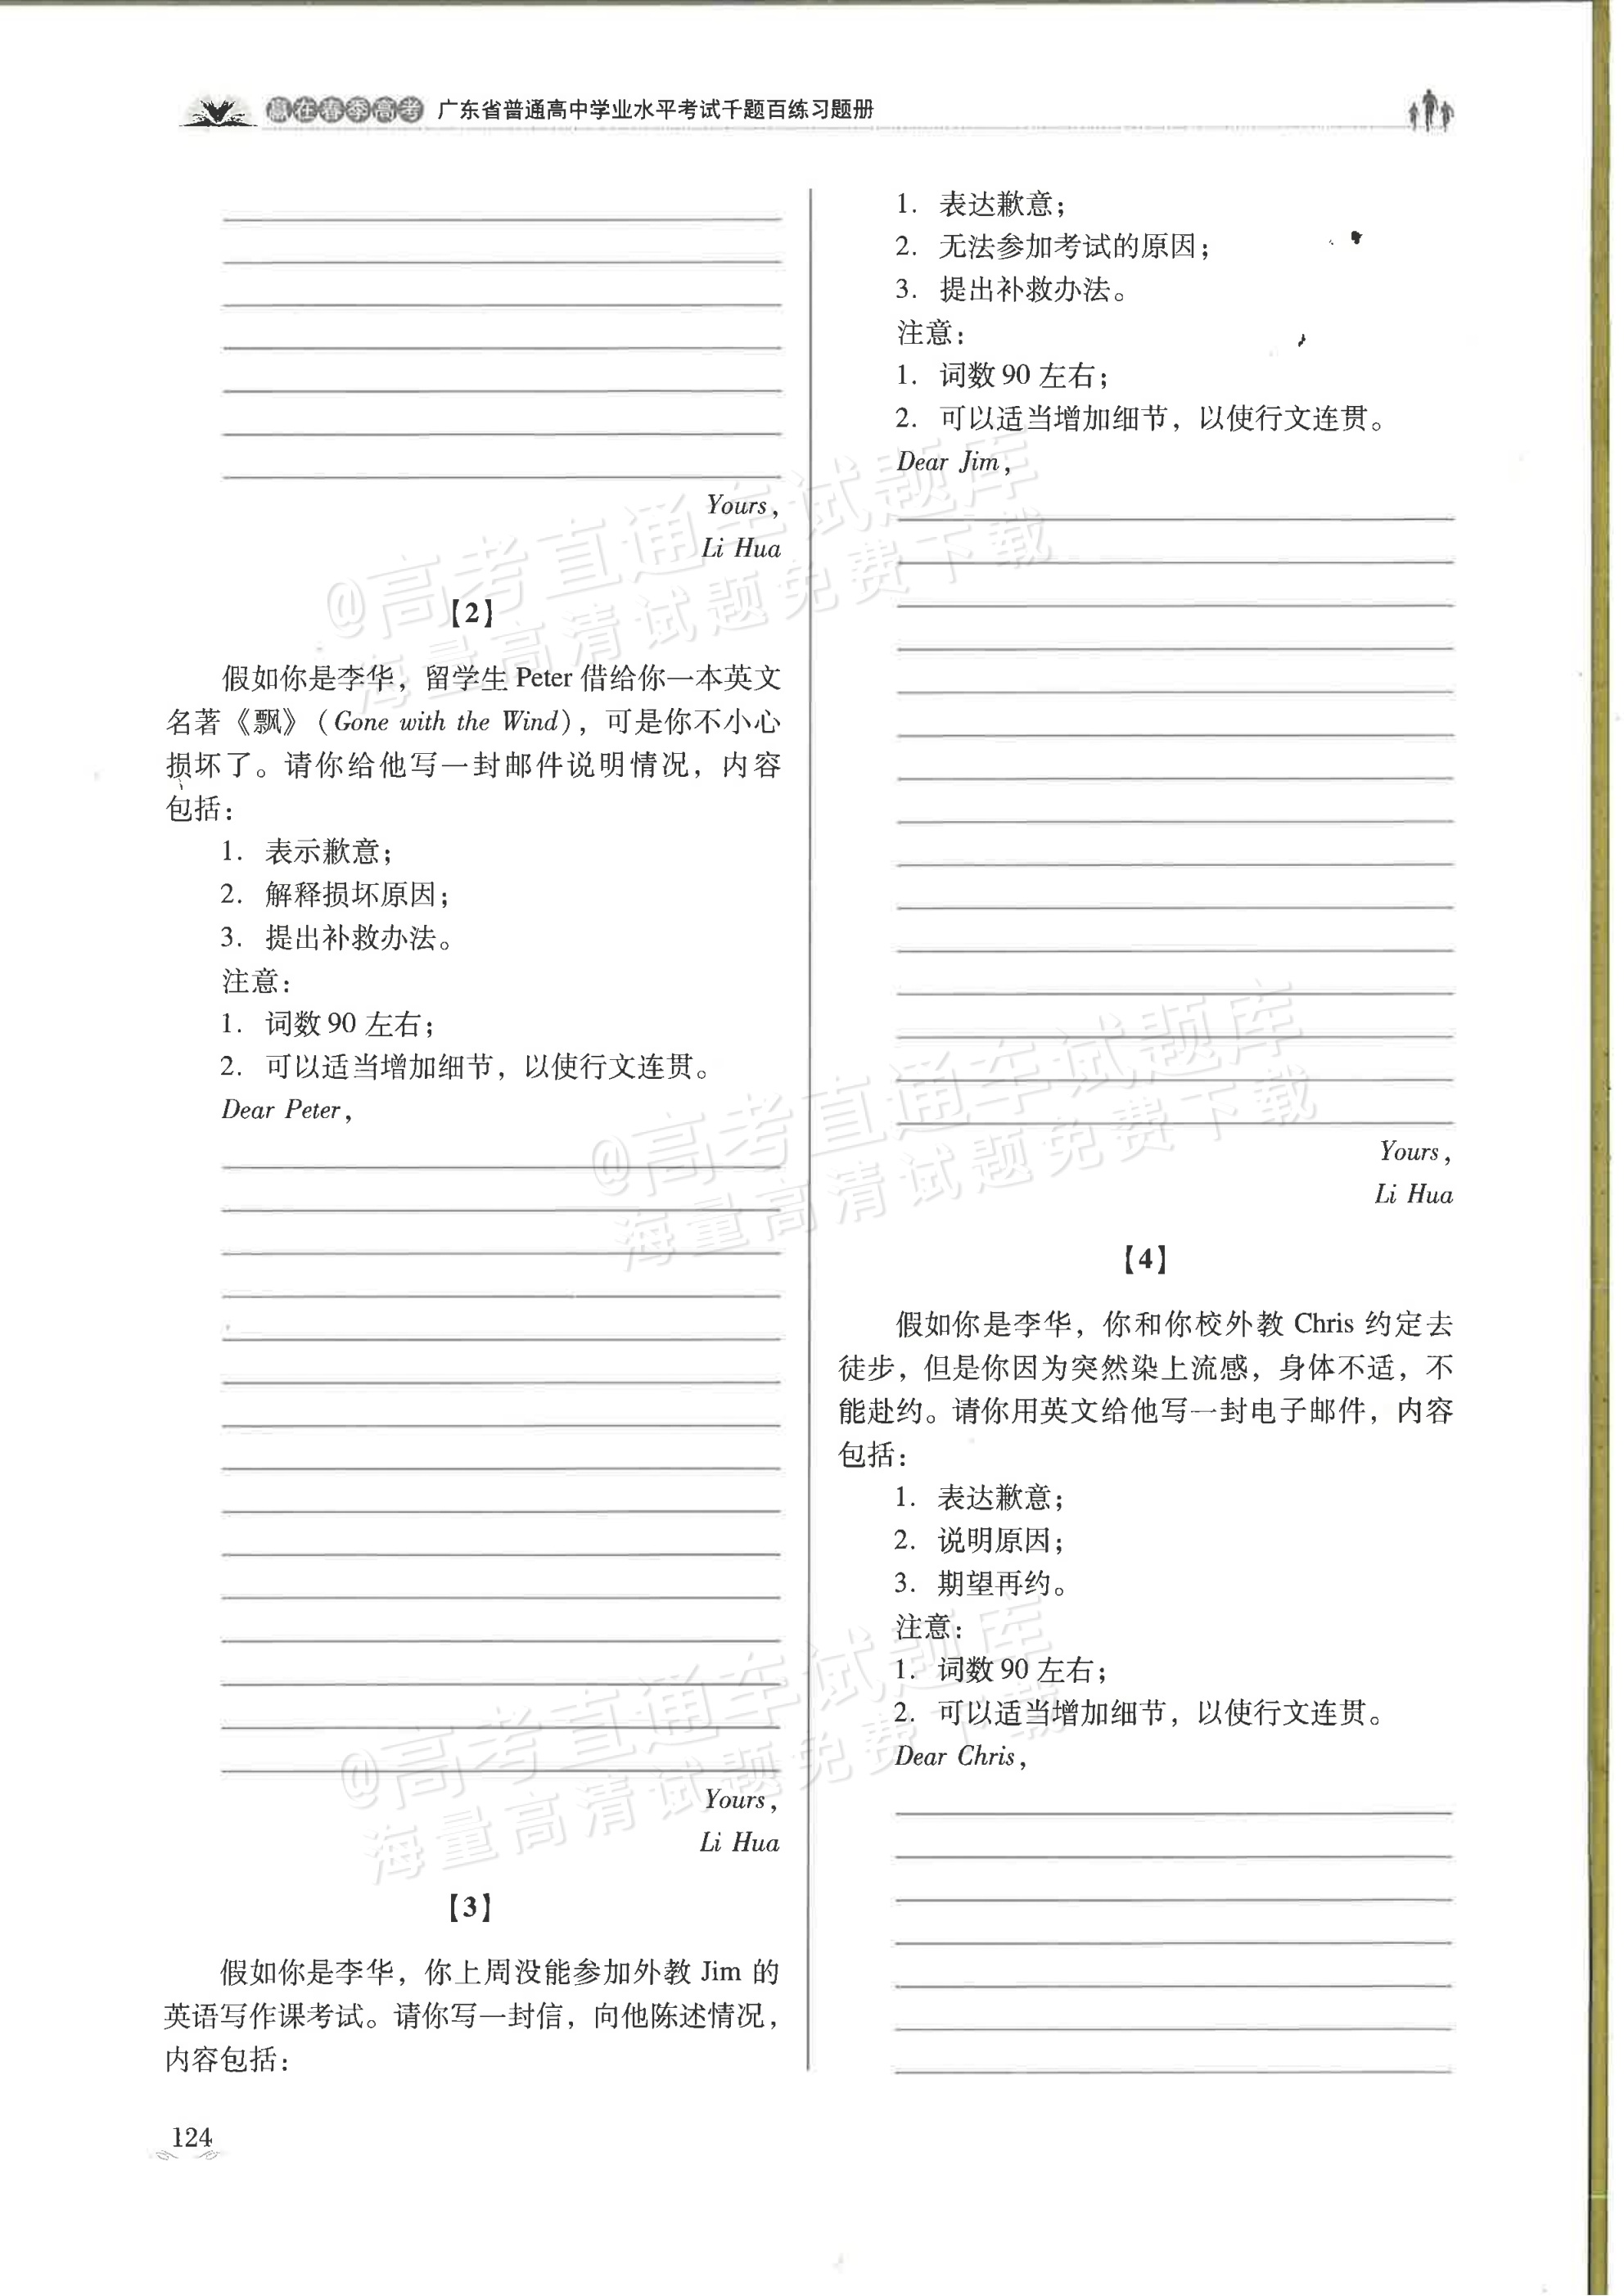 赢在春季高考 广东省普通高中学业水平考试千题百练习题册
Yours,
Li Hua
【2】
假如你是李华，留学生 Peter 借给你一本英文
名著《飘》（Gone with the Wind），可是你不小心
损坏了。请你给他写一封邮件说明情况，内容
包括：
1. 表示歉意；
2. 解释损坏原因；
3. 提出补救办法。
注意：
1. 词数 90 左右；
2. 可以适当增加细节，以使行文连贯。
Dear Peter,
Yours,
Li Hua
【3】
假如你是李华，你上周没能参加外教 Jim 的
英语写作课考试。请你写一封信，向他陈述情况，
内容包括：
1. 表达歉意；
2. 无法参加考试的原因；
3. 提出补救办法。
注意：
1. 词数 90 左右；
2. 可以适当增加细节，以使行文连贯。
Dear Jim,
Yours,
Li Hua
【4】
假如你是李华，你和你校外教 Chris 约定去
徒步，但是你因为突然染上流感，身体不适，不
能赴约。请你用英文给他写一封电子邮件，内容
包括：
1. 表达歉意；
2. 说明原因；
3. 期望再约。
注意：
1. 词数 90 左右；
2. 可以适当增加细节，以使行文连贯。
Dear Chris,
124
@高考直通车试题库
海量高清试题免费下载
@高考直通车试题库
海量高清试题免费下载
@高考直通车试题库
海量高清试题免费下载